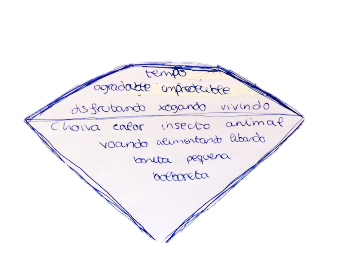 tempo
agradable impredecible
disfrutando xogando vivindo
Choiva calor insecto animal
voando alimentando libando
bonita pequena
bolboreta